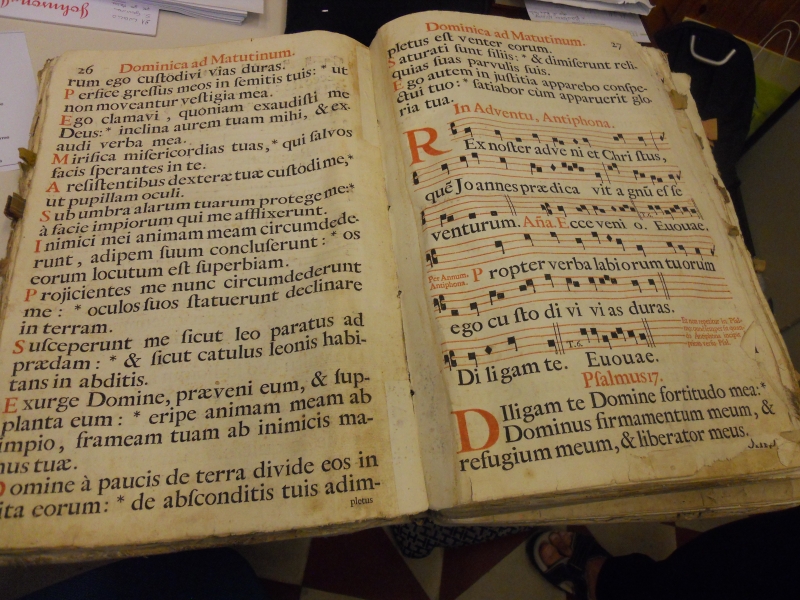 26 Dominica ad Matutinum.
rum ego cuſtodivi vias duras.
Perfice greſſus meos in ſemitis tuis: * ut
non moveantur veſtigia mea.
Ego clamavi, quoniam exaudiſti me
Deus: * inclina aurem tuam mihi, & ex-
audi verba mea.
Mirifica miſericordias tuas, * qui ſalvos
facis ſperantes in te.
A reſiſtentibus dexteræ tuæ cuſtodi me, *
ut pupillam oculi.
Sub umbra alarum tuarum protege me: *
à facie impiorum qui me afflixerunt.
Inimici mei animam meam circumdede-
runt, adipem ſuum concluſerunt: * os
eorum locutum eſt ſuperbiam.
Projicientes me nunc circumdederunt
me: * oculos ſuos ſtatuerunt declinare
in terram.
Suſceperunt me ſicut leo paratus ad
prædam: * & ſicut catulus leonis habi-
tans in abditis.
Exurge Domine, præveni eum, & ſup-
planta eum: * eripe animam meam ab
impio, frameam tuam ab inimicis ma-
nus tuæ.
Domine à paucis de terra divide eos in
vita eorum: * de abſconditis tuis adim-
pletus
Dominica ad Matutinum. 27
pletus eſt venter eorum.
Saturati ſunt filiis: * & dimiſerunt reli-
quias ſuas parvulis ſuis.
Ego autem in juſtitia apparebo conſpe-
ctui tuo: * ſatiabor cùm apparuerit glo-
ria tua.
In Adventu, Antiphona.
REx noſter adve ni et Chri ſtus,
qué Jo annes præ dica vit a gnũ eſ ſe
venturum. Aña. Ecce veni o. Euouae.
Per Annum.
Antiphona.
Propter verba labi orum tuorùm
ego cu ſto di vi vi as duras.
Di li gam te. Euouae.
Pſalmus 17.
DIligam te Domine fortitudo mea: *
Dominus firmamentum meum, &
refugium meum, & liberator meus.